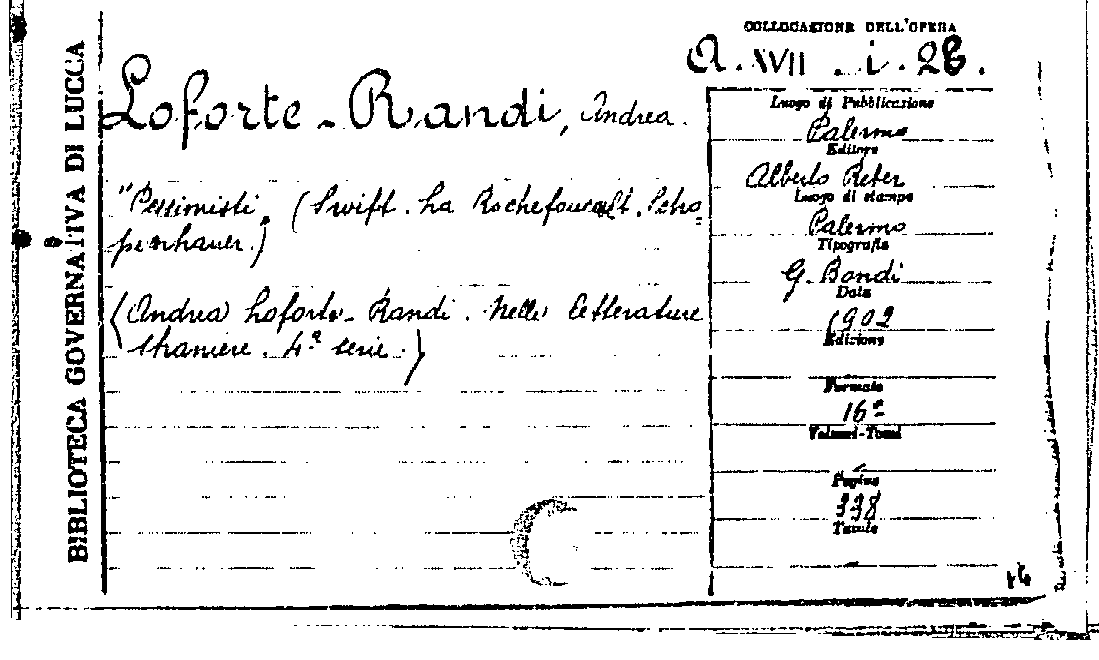 BIBLIOTECA GOVERNATIVA DI LUCCA
COLLOCAZIONE DELL'OPERA
A. XVII . i . 28.
Loforte-Randi, Andrea.
"Pessimisti" (Swift. La Rochefoucault. Scho=
penhauer.)
(Andrea Loforte-Randi. Nelle letterature
straniere. 4ª serie.)
Luogo di Pubblicazione
Palermo
Editore
Alberto Reber
Luogo di stampa
Palermo
Tipografia
G. Bondi
Data
1902
Edizione
Formato
16º
Volumi-Tomi
Pagine
338
Tavole